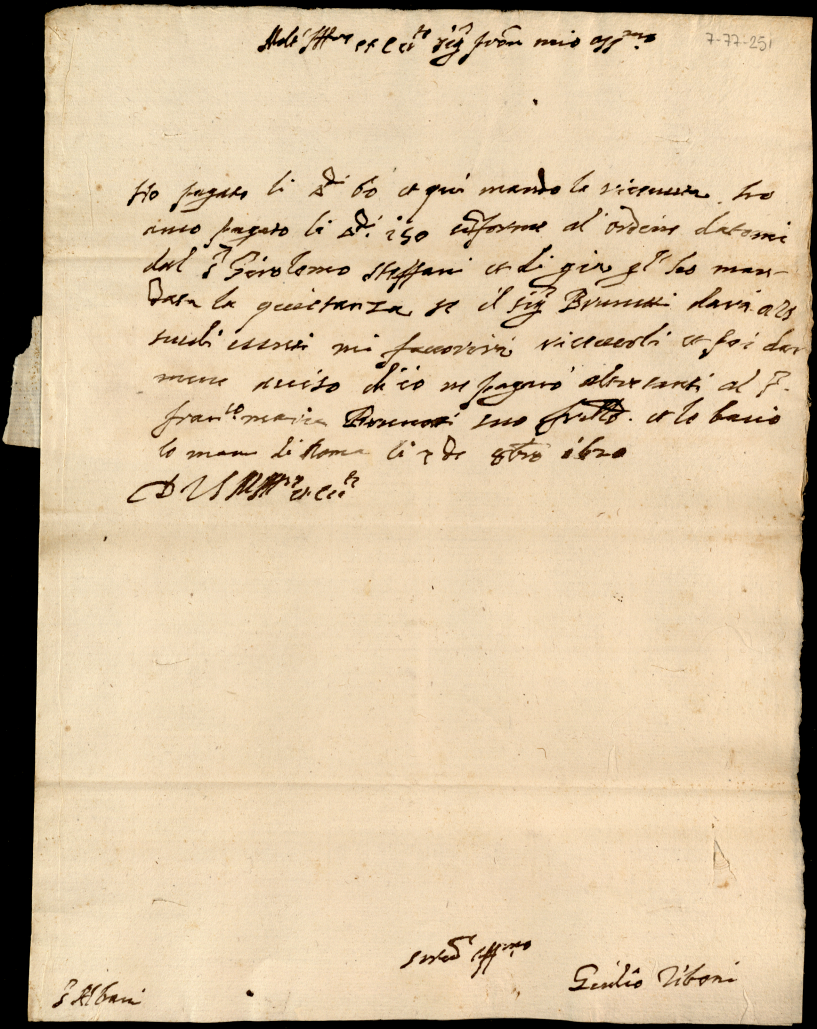 Molt' Ill.re et ecc.te sig.r pron mio oss.mo
7-77-251
Ho pagato li ∇di 60 et qui mando la ricevuta. ho
anco pagato li ∇di 250 conforme al ordine datomi
dal s.r Girolomo Steffani et di gia gl' ho man-
data la quietanza se il sig.r Brunetti darà a
scudi mi favorirà et poi dar
mene aviso ch'io ne pagarò altretanti al s.r
fran.co maria Brunetti suo frello. et lo bacio
le mani di Roma li 2 de 8bre
D V S M Ill.re et ecc.te
Ser.re aff.mo
Giulio Tiboni
s.r Albani